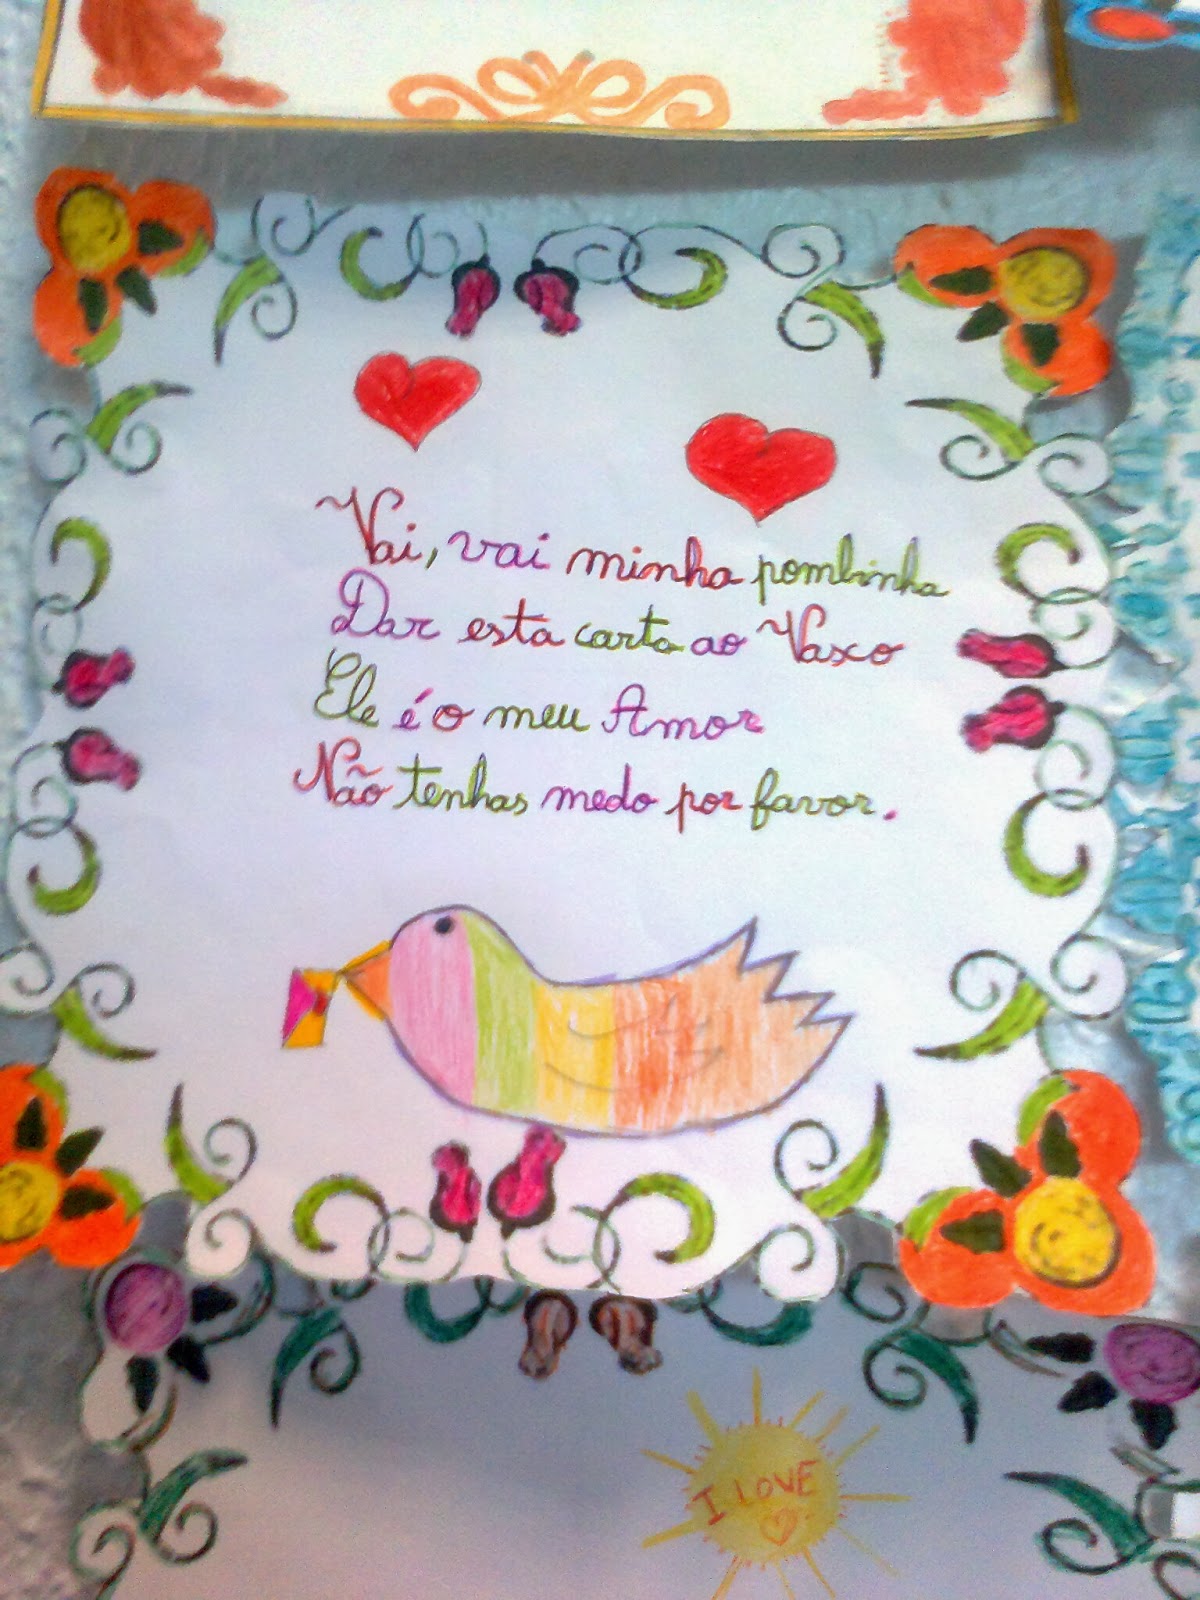 Vai, vai minha pombinha
Dar esta carta ao Vasco
Ele é o meu Amor
Não tenhas medo por favor.
I LOVE